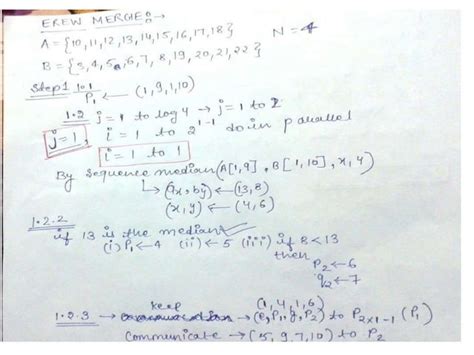 EREW MERGE:→
A = {10,11,12,13,14,15,16,17,18} N = 4
B = {3,4,5,6,7,8,19,20,21,22}
Step1 1.1 P₁ ← (1,9,1,10)
1.2 j=1 to log4 → j=1 to 2
j=1, i = 1 to 2¹⁻¹ do in parallel
i = 1 to 1
By Sequence median (A[1,9], B[1,10], x, y)
↳ (ax, by) ← (13,8)
(x,y) ← (4,6)
1.2.2
if 13 is the median
(i) P₁←4 (ii) ←5 (iii) if 8<13
then
P₂←6
q₂←7
keep (1,4,1,6)
1.2.3 → → (e,P₁,g,P₂) to P₂ₓ₁₋₁ (P₁)
Communicate → (5,9,7,10) to P₂